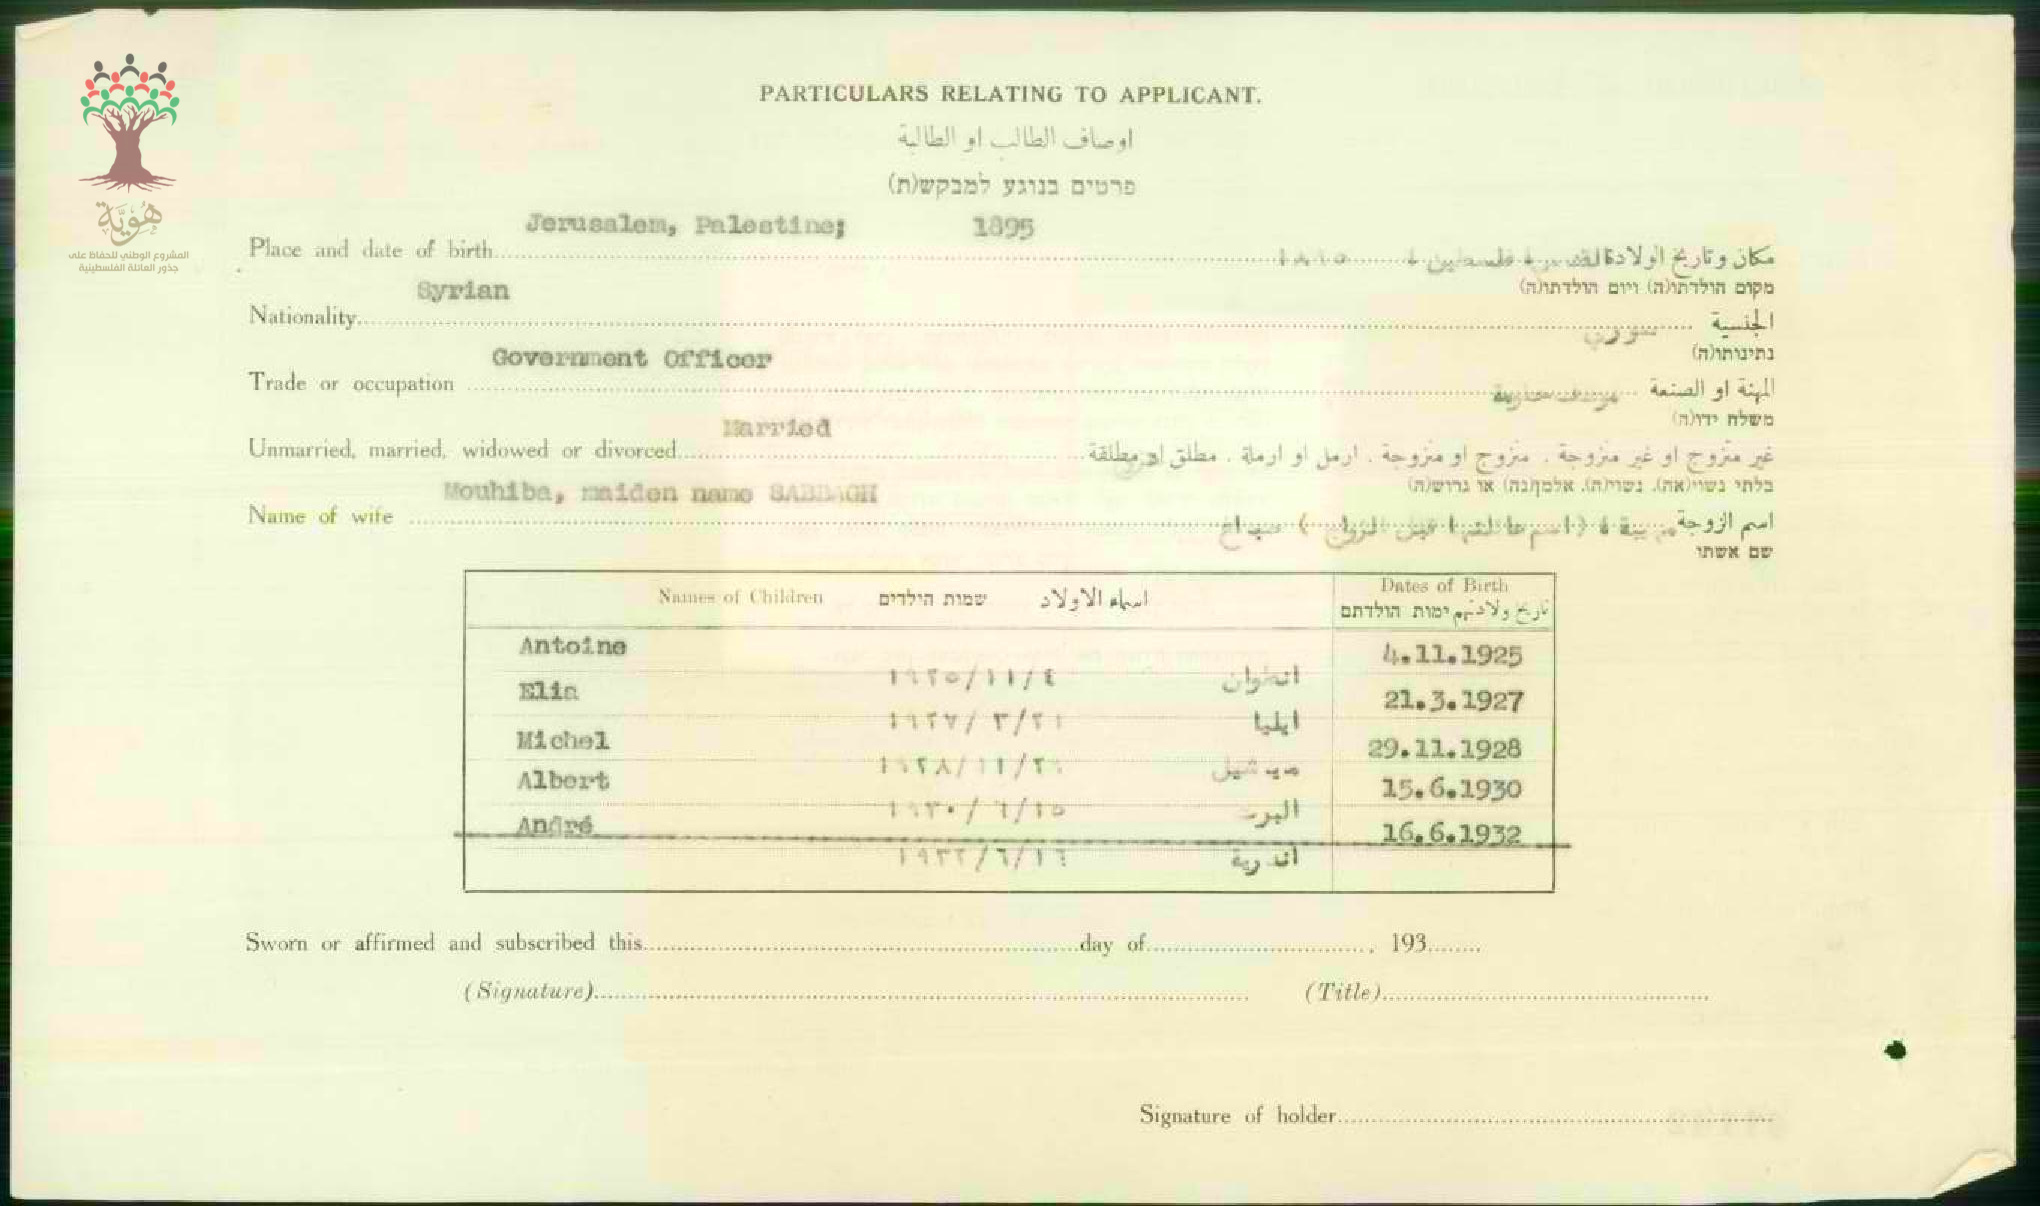 هُوِيَّة
المشروع الوطني للحفاظ على
جذور العائلة الفلسطينية
PARTICULARS RELATING TO APPLICANT.
اوصاف الطالب او الطالبة
פרטים בנוגע למבקש(ת)
Jerusalem, Palestine; 1895
Place and date of birth مكان وتاريخ الولادة القدس، فلسطين، ١٨٩٥
מקום הולדתו(ה) ויום הולדתו(ה)
Syrian
Nationality الجنسية سوري
נתינותו(ה)
Government Officer
Trade or occupation المهنة او الصنعة
משלח ידו(ה)
Married
Unmarried, married, widowed or divorced غير متزوج او غير متزوجة . متزوج او متزوجة . ارمل او ارملة . مطلق او مطلقة
בלתי נשוי(אה), נשוי(ה), אלמן(נה) או גרוש(ה)
Mouhiba, maiden name SABBAGH
Name of wife اسم الزوجة (اسم عائلتها قبل الزواج) صباغ
שם אשתו
Names of Children שמות הילדים اسماء الاولاد Dates of Birth
تاريخ ولادتهم ימות הולדתם
Antoine 4.11.1925
١٩٢٥/١١/٤ انطوان
Elia 21.3.1927
١٩٢٧/٣/٢١ ايليا
Michel 29.11.1928
١٩٢٨/١١/٢٩ ميشيل
Albert 15.6.1930
١٩٣٠/٦/١٥ البرت
André 16.6.1932
١٩٣٢/٦/١٦ اندرية
Sworn or affirmed and subscribed this day of , 193
(Signature) (Title)
Signature of holder